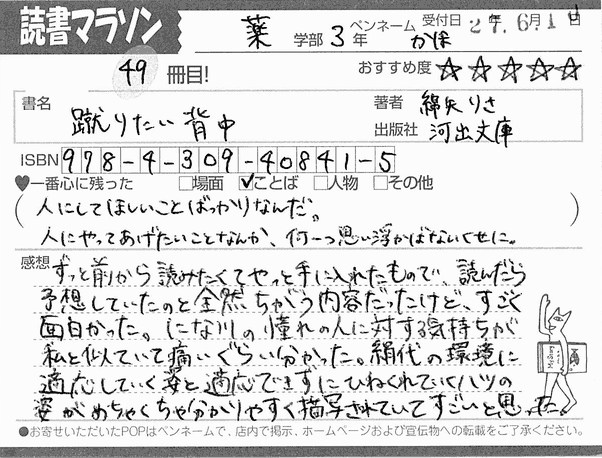 読書マラソン
薬 学部 3 年 ペンネーム かほ 受付日 27.年 6月 1 日
49 冊目! おすすめ度 ☆☆☆☆☆
書名 蹴りたい背中
著者 綿矢りさ
出版社 河出文庫
ISBN 978-4-309-40841-5
♥一番心に残った □場面 ☑ことば □人物 □その他
(人にしてほしいことばっかりなんだ。
人にやってあげたいことなんか、何一つ思い浮かばないくせに。)
感想 ずっと前から読みたくてやっと手に入れたもので、読んだら
予想していたのと全然ちがう内容だったけど、すごく
面白かった。にな川の憧れの人に対する気持ちが
私と似ていて痛いぐらい分かった。絹代の環境に
適応していく姿と適応できずにひねくれていくハツの
姿がめちゃくちゃ分かりやすく描写されていてすごいと思った。
●お寄せいただいたPOPはペンネームで、店内で掲示、ホームページおよび宣伝物への転載をご了承ください。